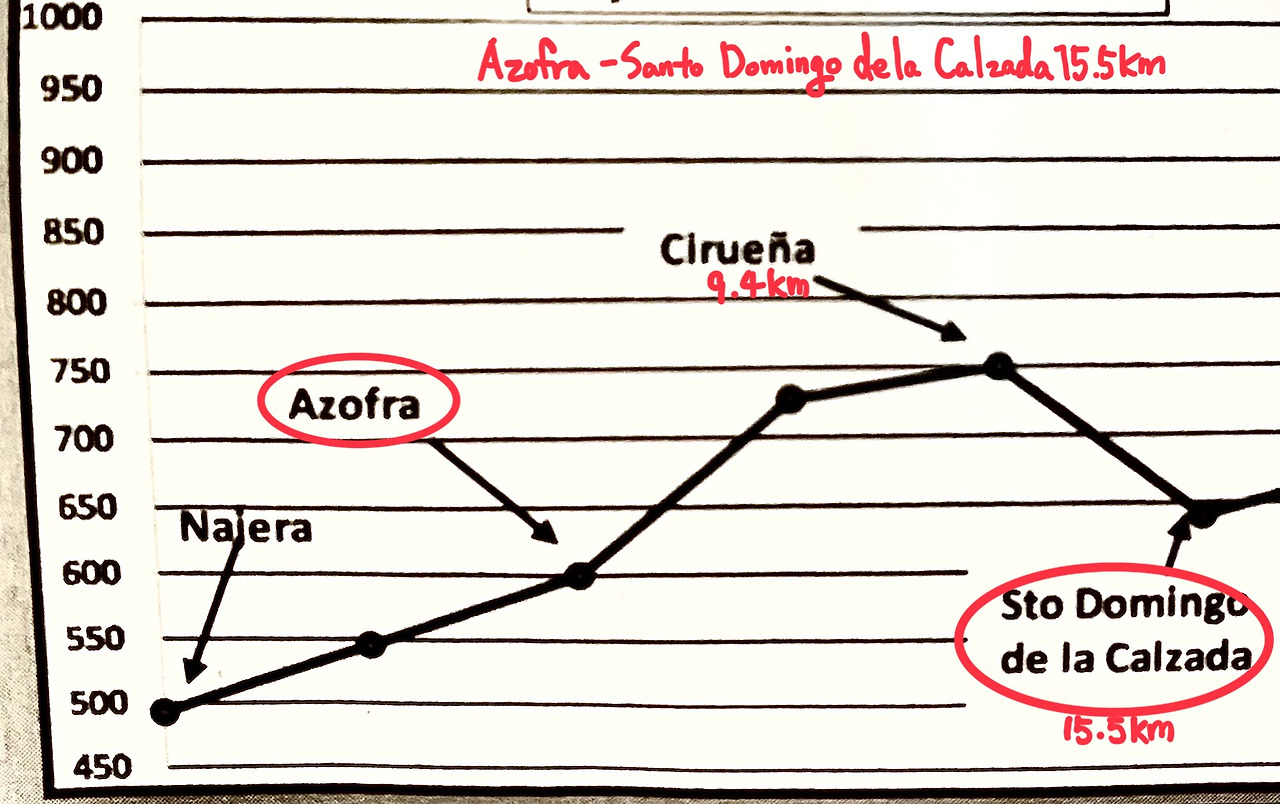 1000
Azofra - Santo Domingo de la Calzada 15.5km
950
900
850
Cirueña
9.4km
800
750
Azofra
700
650
Najera
600
Sto Domingo
de la Calzada
550
500
15.5km
450